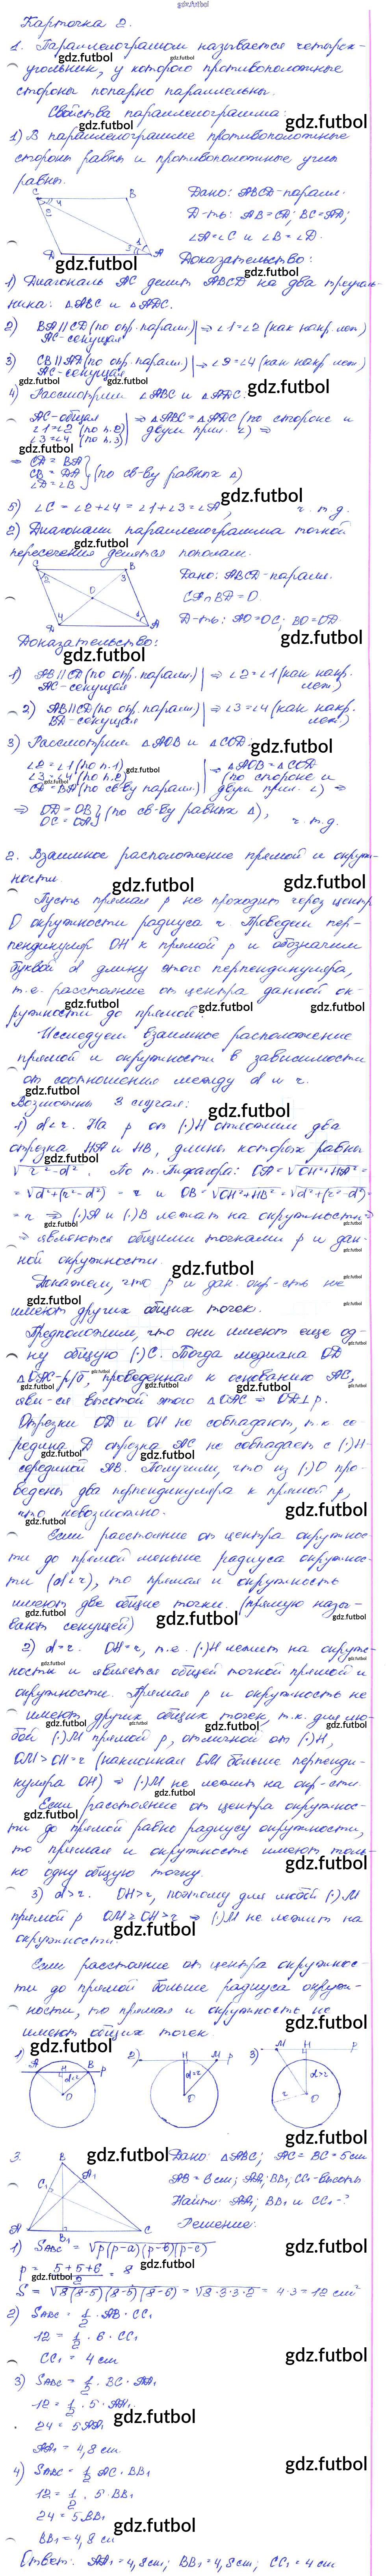 gdz.futbol
Карточка 2.
1. Параллелограммом называется четырех-
угольник, у которого противоположные
стороны попарно параллельны.
Свойства параллелограмма:
1) В параллелограмме противоположные
стороны равны и противоположные углы
равны.
Дано: ABCD-паралл.
Д-ть: AB=CD; BC=AD;
∠A=∠C и ∠B=∠D.
Доказательство:
1) Диагональ AC делит ABCD на два треуголь-
ника: △ABC и △ADC.
2) BA∥CD (по опр. паралл.) | ⇒ ∠1=∠2 (как накр. леж)
AC-секущая
3) CB∥AD (по опр. паралл.) | ⇒ ∠3=∠4 (как накр. леж)
AC-секущая
4) Рассмотрим △ABC и △ADC.
AC-общая | ⇒ △ABC=△ADC (по стороне и
∠1=∠2 (по п.2) двум прил. ∠) ⇒
∠3=∠4 (по п.3)
⇒ CD = BA
CB = DA } (по св-ву равных △)
∠D=∠B
5) ∠C = ∠2+∠4 = ∠1+∠3 = ∠A, ч.т.д.
2) Диагонали параллелограмма точкой
пересечения делятся пополам.
Дано: ABCD-паралл.
CA∩BD=O.
Д-ть: AO=OC; BO=OD.
Доказательство:
1) AB∥CD (по опр. паралл.) | ⇒ ∠2=∠1 (как накр.
AC-секущая леж)
2) AB∥CD (по опр. паралл.) | ⇒ ∠3=∠4 (как накр.
BD-секущая леж)
3) Рассмотрим △AOB и △COD:
∠2=∠1 (по п.1) | ⇒ △AOB=△COD
∠3=∠4 (по п.2) (по стороне и
CD=BA (по св-ву паралл.) двум прил. ∠) ⇒
⇒ OD=OB } (по св-ву равных △),
OC=OA ч.т.д.
2. Взаимное расположение прямой и окруж-
ности.
Пусть прямая p не проходит через центр
O окружности радиуса r. Проведем пер-
пендикуляр OH к прямой p и обозначим
буквой d длину этого перпендикуляра,
т.е. расстояние от центра данной ок-
ружности до прямой.
Исследуем взаимное расположение
прямой и окружности в зависимости
от соотношения между d и r.
Возможны 3 случая:
1) d<r. На p от (·)H отложим два
отрезка HA и HB, длины которых равны
√r²-d². По т. Пифагора: OA=√OH²+HA²=
=√d²+(r²-d²) = r и OB=√OH²+HB²=√d²+(r²-d²)=
= r ⇒ (·)A и (·)B лежат на окружности ⇒
⇒ являются общими точками p и дан-
ной окружности.
Докажем, что p и дан. окр-сть не
имеют других общих точек.
Предположим, что они имеют еще од-
ну общую (·)C. Тогда медиана OD
△OAC-р/б, проведенная к основанию AC,
явл-ся высотой этого △OAC ⇒ OD⊥p.
Отрезки OD и OH не совпадают, т.к. се-
редина D отрезка AC не совпадает с (·)H-
серединой AB. Получим, что из (·)O про-
ведены два перпендикуляра к прямой p,
что невозможно.
Если расстояние от центра окружнос-
ти до прямой меньше радиуса окружнос-
ти (d<r), то прямая и окружность
имеют две общие точки. (прямую назы-
вают секущей)
2) d=r. OH=r, т.е. (·)H лежит на окруж-
ности и является общей точкой прямой и
окружности. Прямая p и окружность не
имеют других общих точек, т.к. для лю-
бой (·)M прямой p, отличной от (·)H,
OM>OH=r (наклонная OM больше перпенди-
куляра OH) ⇒ (·)M не лежит на окр-сти.
Если расстояние от центра окружнос-
ти до прямой равно радиусу окружности,
то прямая и окружность имеют толь-
ко одну общую точку.
3) d>r. OH>r, поэтому для любой (·)M
прямой p OM≥OH>r ⇒ (·)M не лежит на
окружности.
Если расстояние от центра окружнос-
ти до прямой больше радиуса окруж-
ности, то прямая и окружность не
имеют общих точек.
1) A H B p d<r O
2) H M p d=r O
3) M H p d>r r O
3. Дано: △ABC; AC=BC=5см
AB=6см; AA₁; BB₁; CC₁-высоты
Найти: AA₁; BB₁ и CC₁-?
Решение:
1) S_ABC = √p(p-a)(p-b)(p-c)
p = (5+5+6)/2 = 8
S = √8(8-5)(8-5)(8-6) = √8·3·3·2 = 4·3=12 см²
2) S_ABC = 1/2 · AB · CC₁
12 = 1/2 · 6 · CC₁
CC₁ = 4 см
3) S_ABC = 1/2 · BC · AA₁
12 = 1/2 · 5 · AA₁
24 = 5AA₁
AA₁ = 4,8 см.
4) S_ABC = 1/2 AC · BB₁
12 = 1/2 · 5 · BB₁
24 = 5BB₁
BB₁ = 4,8 см
Ответ: AA₁=4,8см; BB₁=4,8см; CC₁=4см